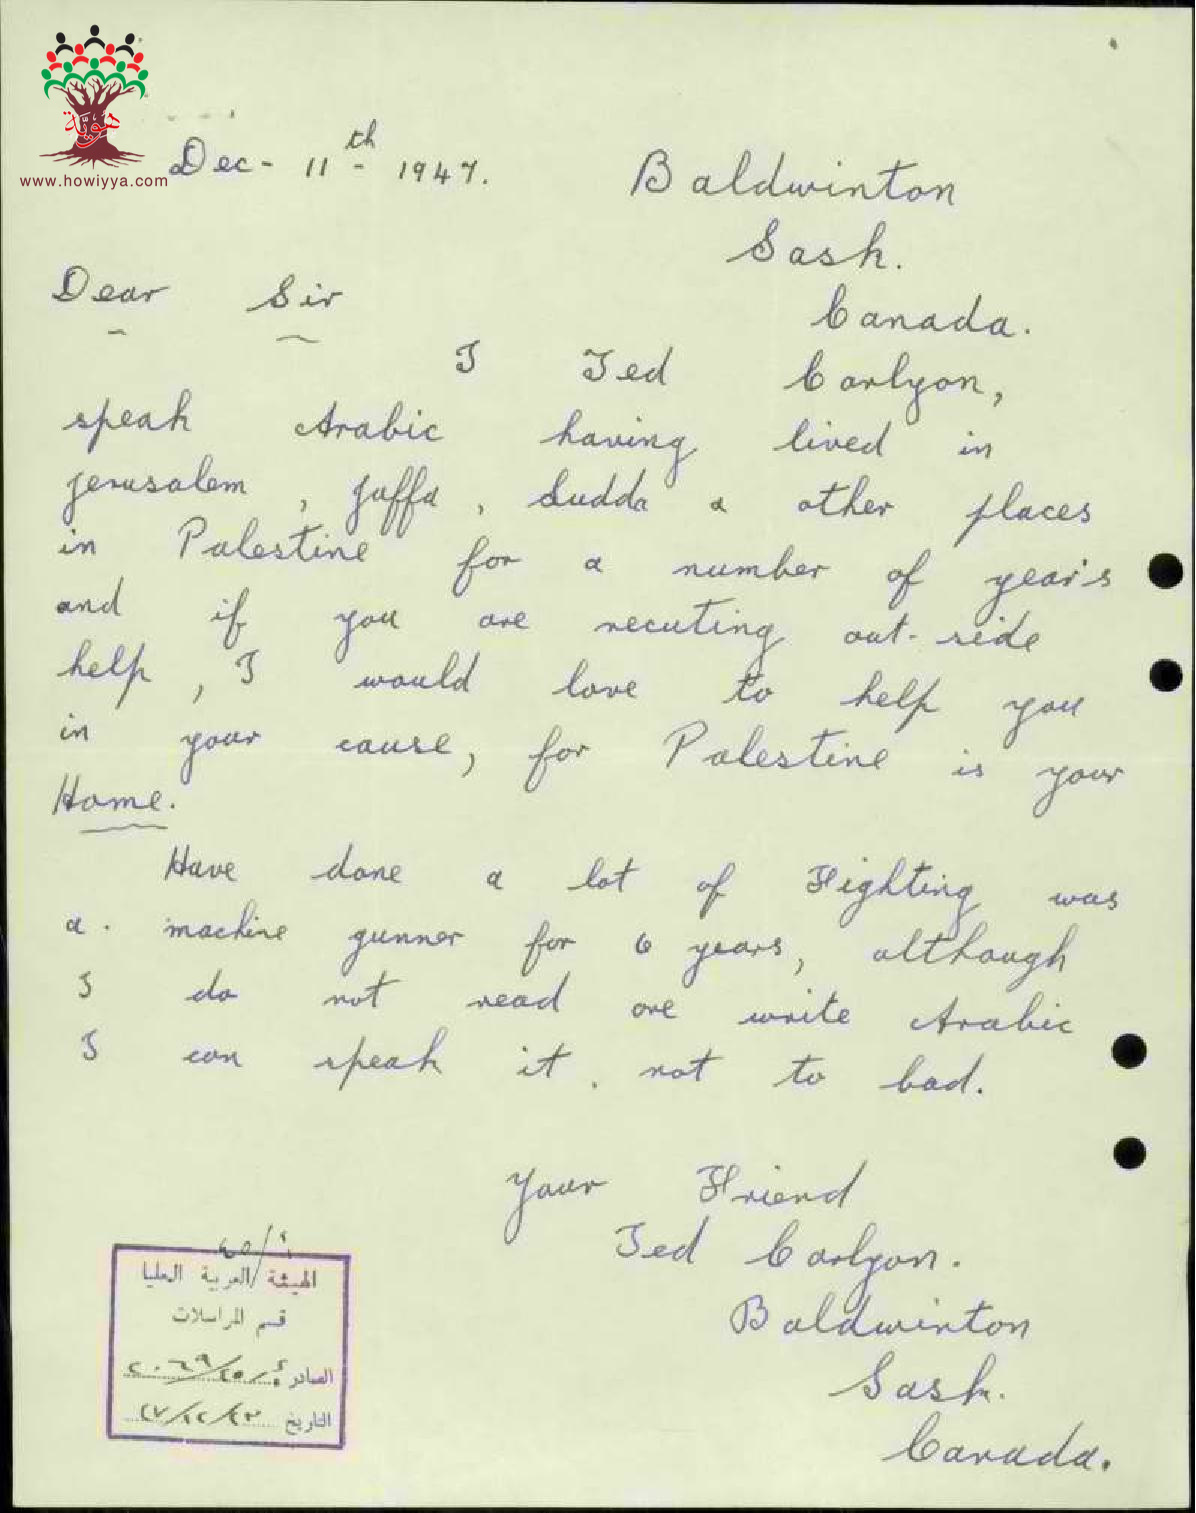 هويّة
www.howiyya.com
Dec - 11th - 1947.
Baldwinton
Sask.
Canada.
Dear Sir
I Ted Carlyon,
speak Arabic having lived in
Jerusalem, Jaffa, Ludda & other places
in Palestine for a number of year's
and if you are recuting out-side
help, I would love to help you
in your cause, for Palestine is your
Home.
Have done a lot of Fighting was
a. machine gunner for 6 years, although
I do not read ore write Arabic
I can speak it. not to bad.
Your Friend
Ted Carlyon.
Baldwinton
Sask.
Canada.
الهيئة العربية العليا
قسم المراسلات
الصادر
التاريخ